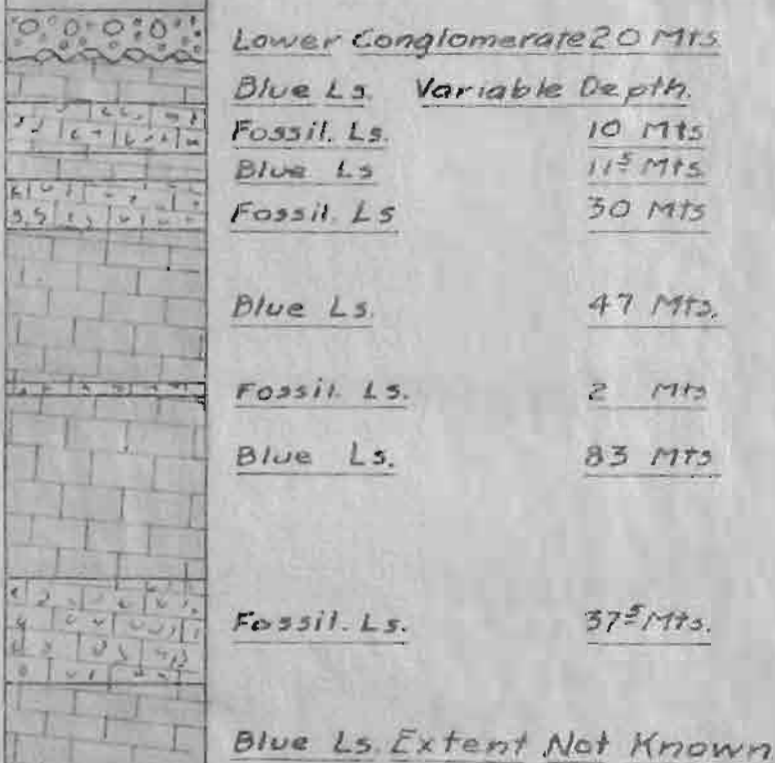 Lower Conglomerate 20 Mts
Blue Ls. Variable Depth.
Fossil. Ls. 10 Mts
Blue Ls 11⁵ Mts.
Fossil. Ls 30 Mts
Blue Ls. 47 Mts.
Fossil. Ls. 2 Mts
Blue Ls. 83 Mts
Fossil. Ls. 37⁵ Mts.
Blue Ls. Extent Not Known